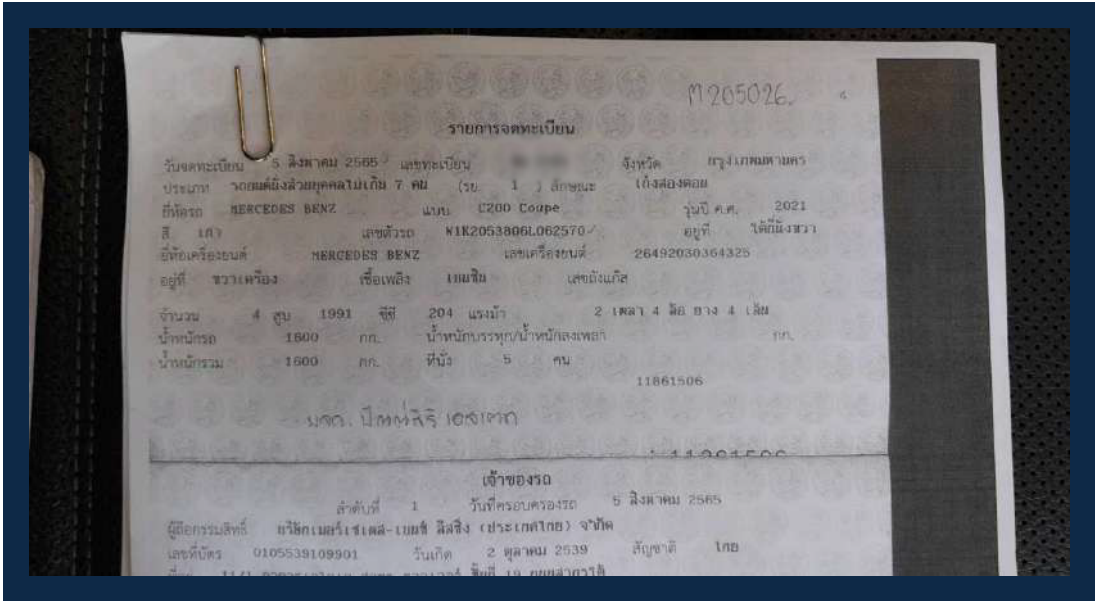 M205026.
รายการจดทะเบียน
วันจดทะเบียน 5 สิงหาคม 2565 เลขทะเบียน จังหวัด กรุงเทพมหานคร
ประเภท รถยนต์นั่งส่วนบุคคลไม่เกิน 7 คน (รย. 1 ) ลักษณะ เก๋งสองตอน
ยี่ห้อรถ MERCEDES BENZ แบบ C200 Coupe รุ่นปี ค.ศ. 2021
สี เทา เลขตัวรถ W1K2053806L062570 อยู่ที่ ใต้ที่นั่งขวา
ยี่ห้อเครื่องยนต์ MERCEDES BENZ เลขเครื่องยนต์ 26492030364325
อยู่ที่ ขวาเครื่อง เชื้อเพลิง เบนซิน เลขถังแก๊ส
จำนวน 4 สูบ 1991 ซีซี 204 แรงม้า 2 เพลา 4 ล้อ ยาง 4 เส้น
น้ำหนักรถ 1600 กก. น้ำหนักบรรทุก/น้ำหนักลงเพลา กก.
น้ำหนักรวม 1600 กก. ที่นั่ง 5 คน
11861506
บจก.
เจ้าของรถ
ลำดับที่ 1 วันที่ครอบครองรถ 5 สิงหาคม 2565
ผู้ถือกรรมสิทธิ์ บริษัทเมอร์เซเดส-เบนซ์ ลีสซิ่ง (ประเทศไทย) จำกัด
เลขที่บัตร 0105539109901 วันเกิด 2 ตุลาคม 2539 สัญชาติ ไทย
ที่อยู่ ชั้นที่ 19 ถนนสาทรใต้